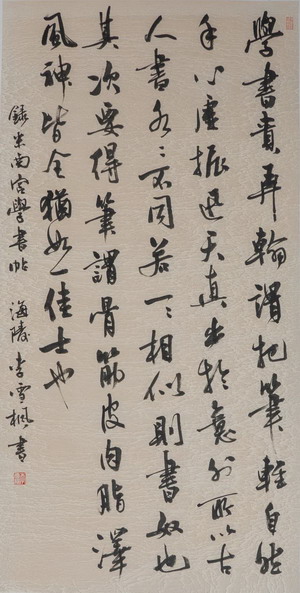 學書貴弄翰謂把筆輕自然
手心虛振迅天真出於意外所以古
人書各各不同若一一相似則書奴也
其次要得筆謂骨筋皮肉脂澤
風神皆全猶如一佳士也
錄米南宮學書帖 海陵李雪楓書